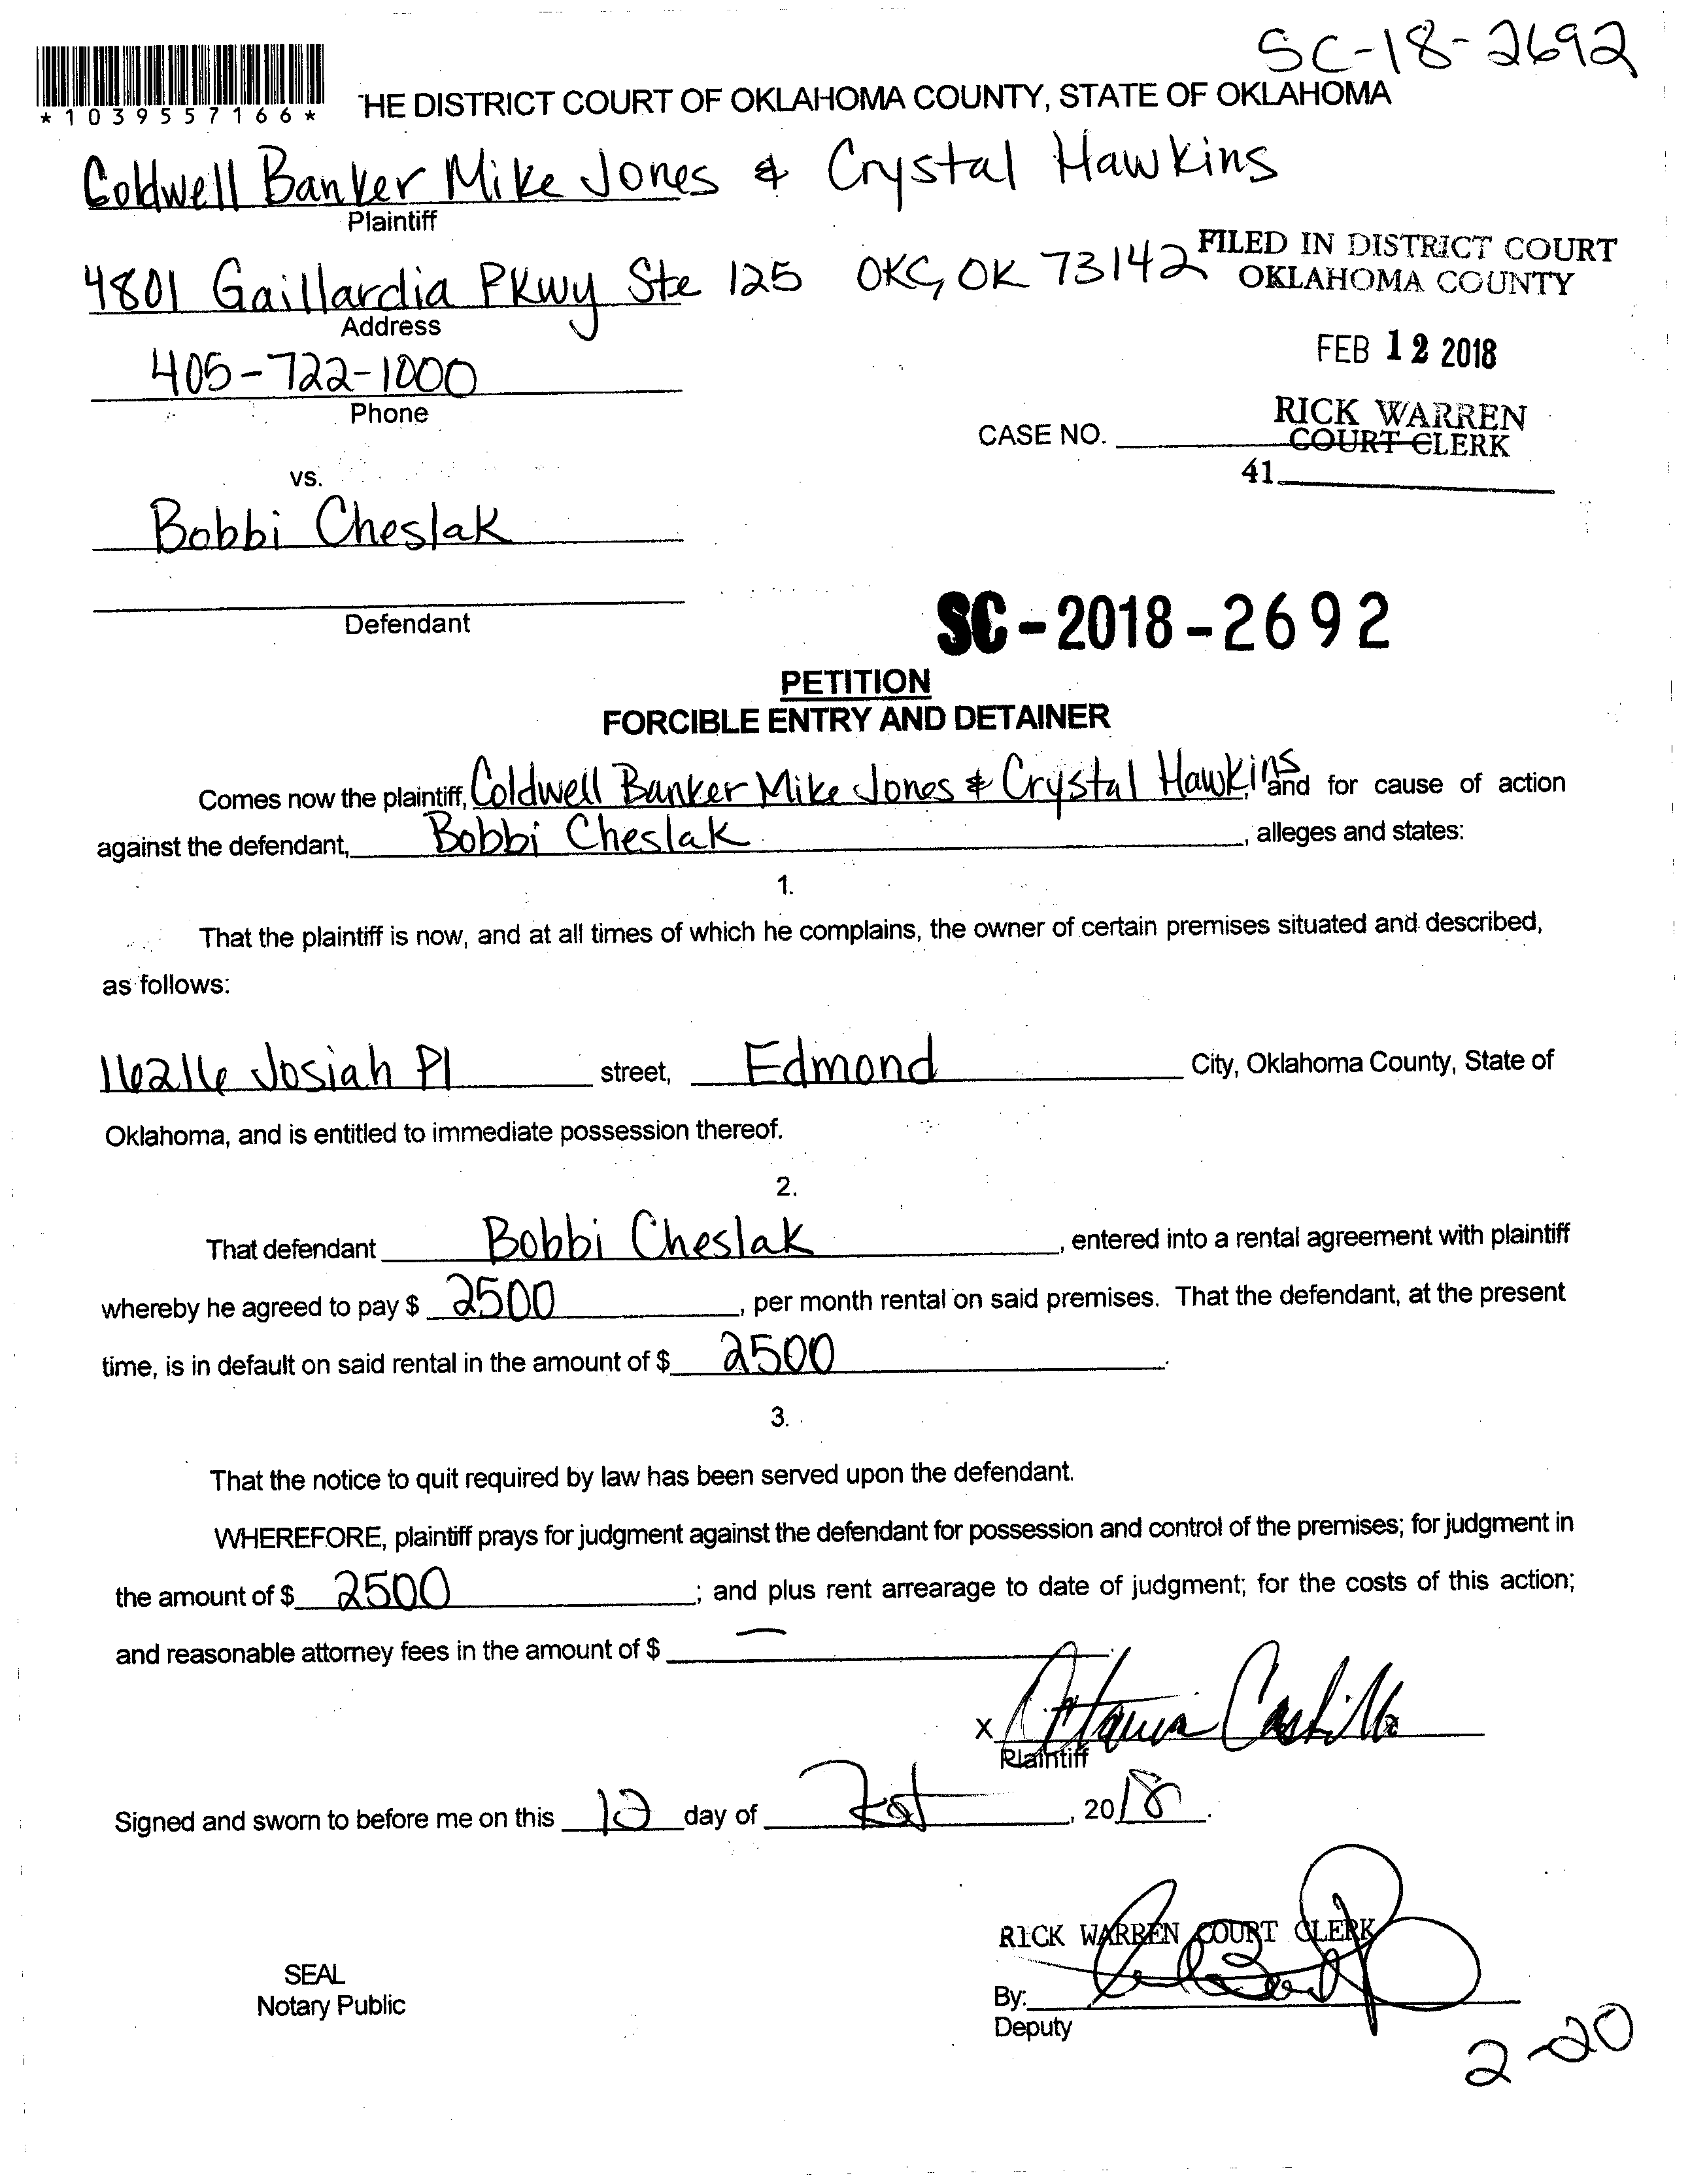 SC-18-2692
*1039557166*
HE DISTRICT COURT OF OKLAHOMA COUNTY, STATE OF OKLAHOMA
Coldwell Banker Mike Jones & Crystal Hawkins
Plaintiff
4801 Gaillardia Pkwy Ste 125 OKC, OK 73142
Address
FILED IN DISTRICT COURT
OKLAHOMA COUNTY
405-722-1000
Phone
FEB 12 2018
RICK WARREN
COURT CLERK
CASE NO.
41
vs.
Bobbi Cheslak
Defendant
SC-2018-2692
PETITION
FORCIBLE ENTRY AND DETAINER
Comes now the plaintiff, Coldwell Banker Mike Jones & Crystal Hawkins, and for cause of action
against the defendant, Bobbi Cheslak, alleges and states:
1.
That the plaintiff is now, and at all times of which he complains, the owner of certain premises situated and described,
as follows:
16216 Josiah Pl street, Edmond City, Oklahoma County, State of
Oklahoma, and is entitled to immediate possession thereof.
2.
That defendant Bobbi Cheslak, entered into a rental agreement with plaintiff
whereby he agreed to pay $ 2500, per month rental on said premises. That the defendant, at the present
time, is in default on said rental in the amount of $ 2500.
3.
That the notice to quit required by law has been served upon the defendant.
WHEREFORE, plaintiff prays for judgment against the defendant for possession and control of the premises; for judgment in
the amount of $ 2500; and plus rent arrearage to date of judgment; for the costs of this action;
and reasonable attorney fees in the amount of $ —.
X Castillo
Plaintiff
Signed and sworn to before me on this 12 day of , 2018.
RICK WARREN COURT CLERK
SEAL
Notary Public
By:
Deputy
2-20